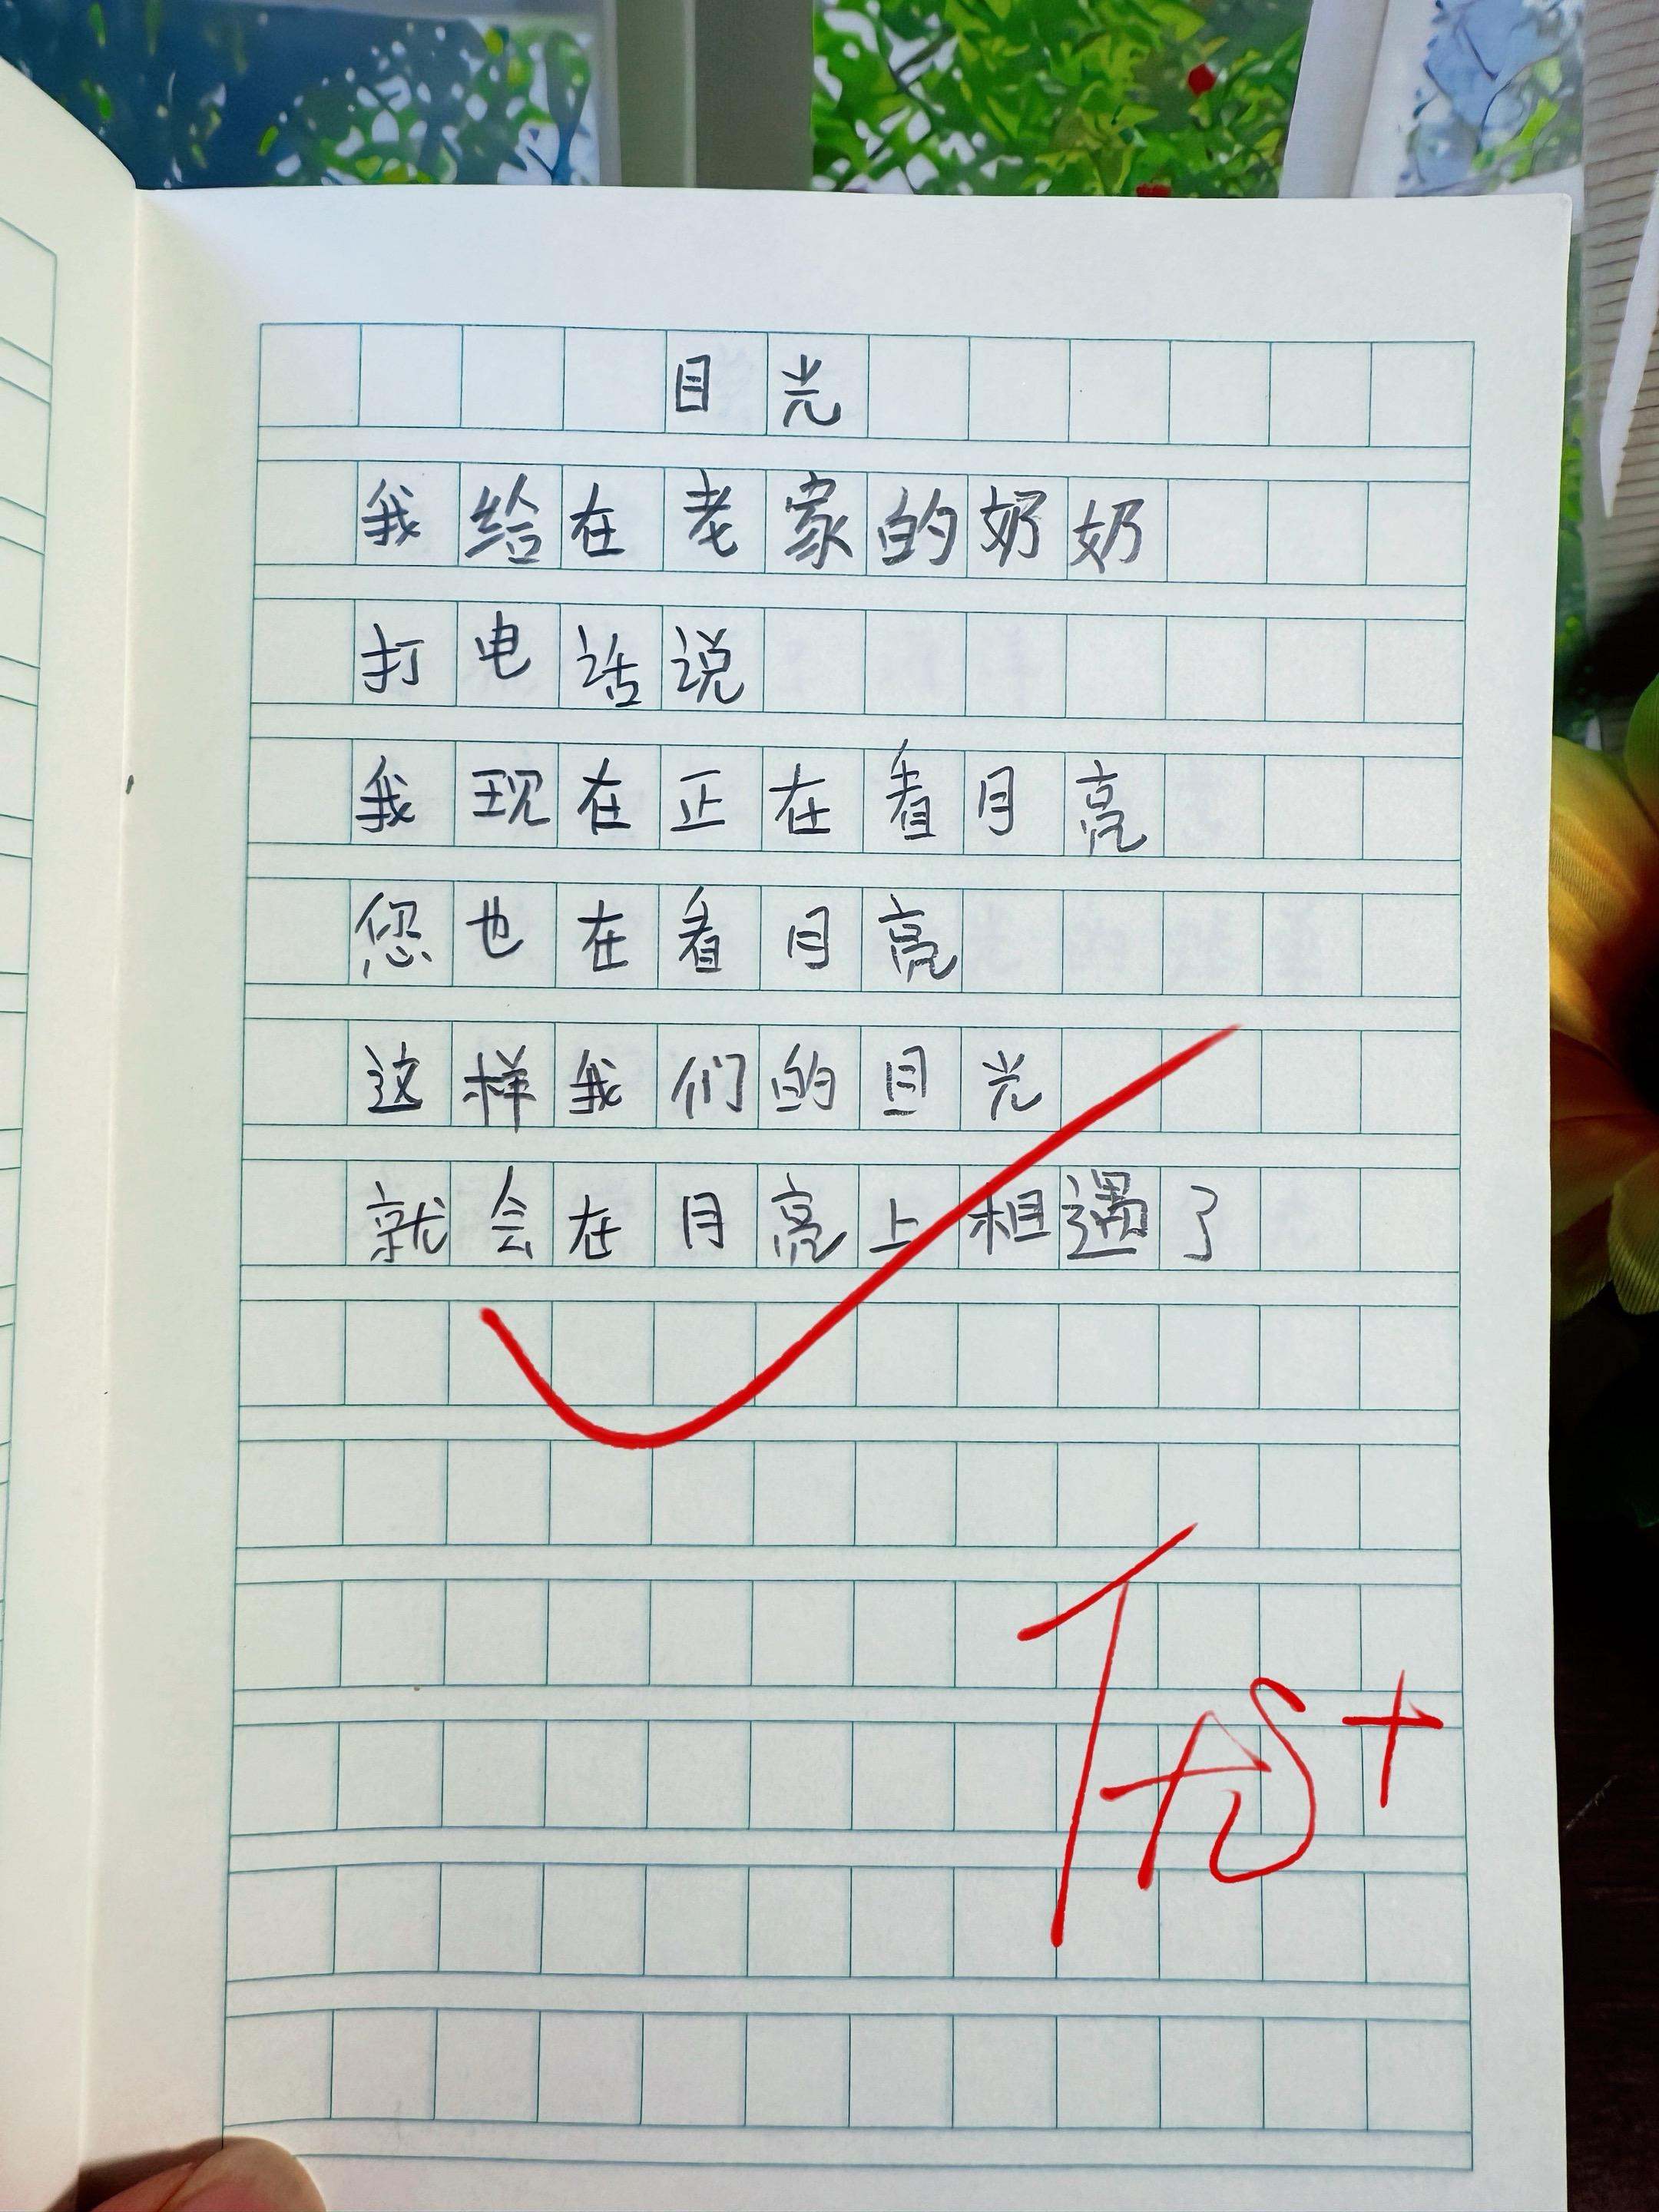 目光
我给在老家的奶奶
打电话说
我现在正在看月亮
您也在看月亮
这样我们的目光
就会在月亮上相遇了